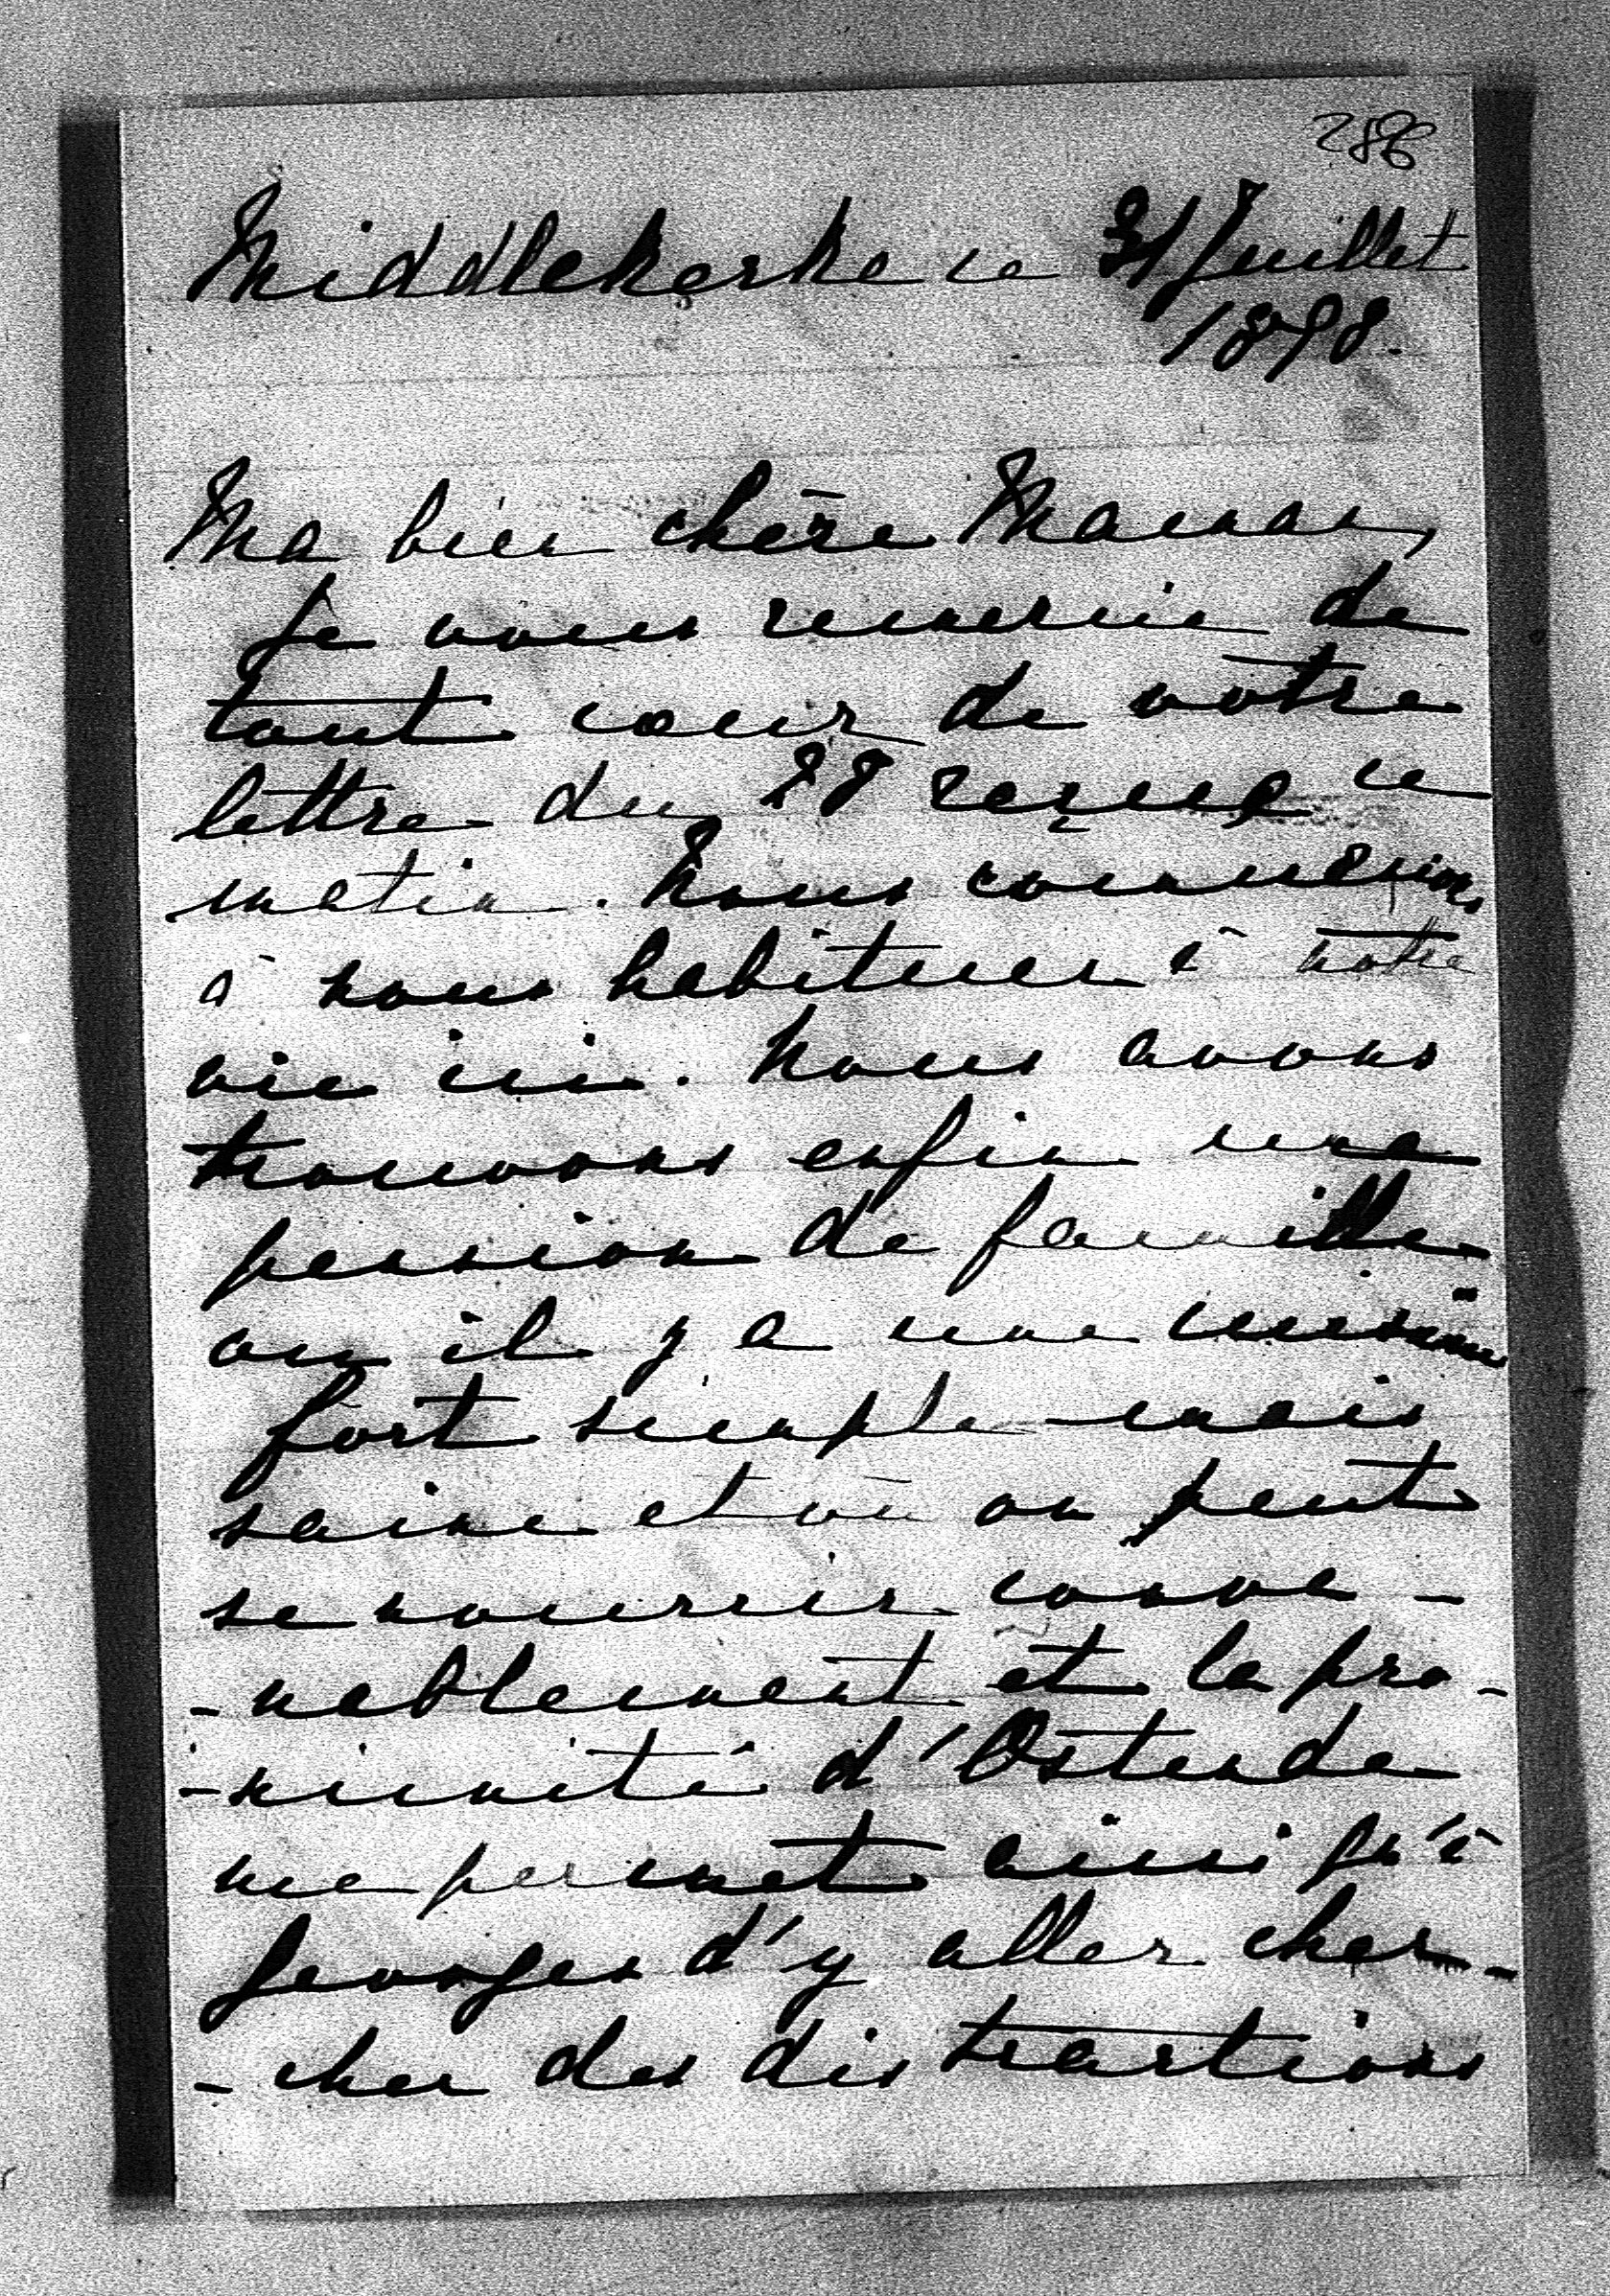 286
Middlekerke ce 31 Juillet
1898.
Ma bien chère Maman,
Je vous remercie de
tout cœur de votre
lettre du 28 reçue ce
matin. Nous commençons
à nous habituer à notre
vie ici. Nous avons
trouvons enfin une
pension de famille
ou il y a une cuisine
fort simple mais
saine et où on peut
se nourrir conve-
-nablement et la pro-
-ximité d'Ostende
me permet ainsi qu'à
Georges d'y aller cher-
-cher des distractions